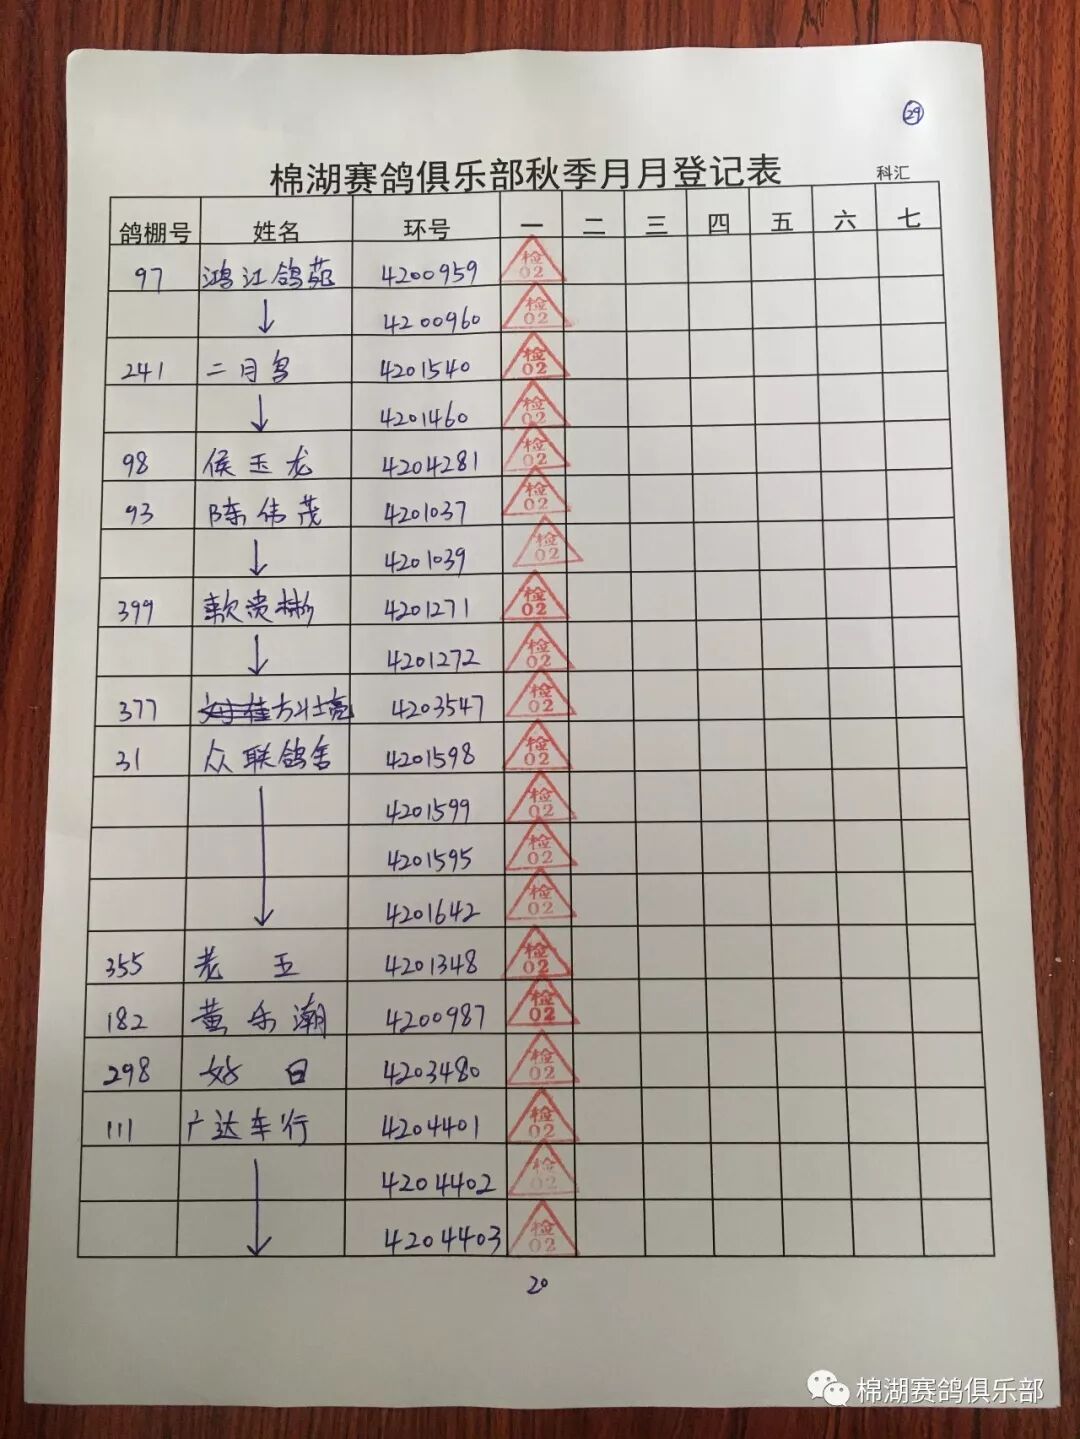 29
棉湖赛鸽俱乐部秋季月月登记表
科汇
鸽棚号 姓名 环号 一 二 三 四 五 六 七
97 鸿江鸽苑 4200959 检02
↓ 4200960 检02
241 二月鸟 4201540 检02
↓ 4201460 检02
98 侯玉龙 4204281 检02
93 陈伟茂 4201037 检02
↓ 4201039 检02
399 贵彬 4201271 检02
↓ 4201272 检02
377 方壮亮 4203547 检02
31 众联鸽舍 4201598 检02
4201599 检02
4201595 检02
↓ 4201642 检02
355 老玉 4201348 检02
182 黄乐潮 4200987 检02
298 日 4203480 检02
111 广达车行 4204401 检02
4204402 检02
↓ 4204403 检02
20
棉湖赛鸽俱乐部